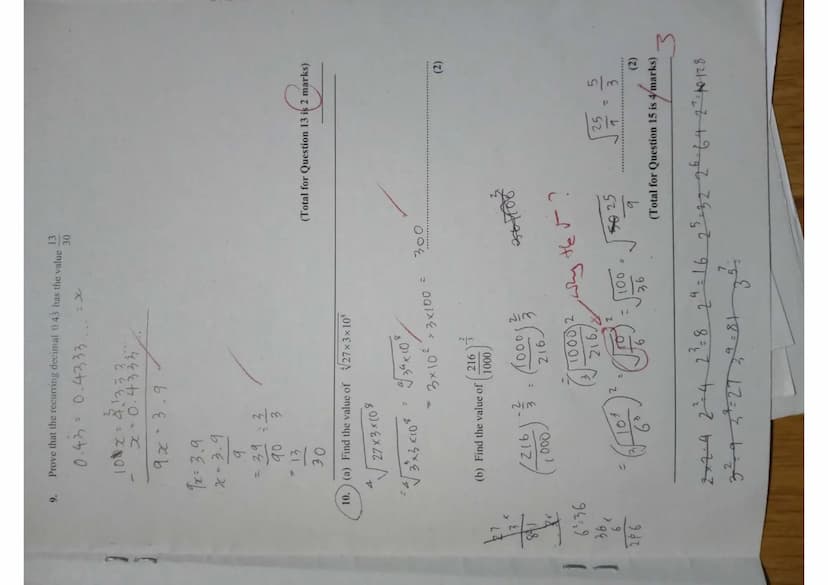 9. Prove that the recurring decimal 0.43 has the value 13/30
0.43 = 0.4333... = x
10x = 4.333
- x = 0.4333...
9x = 3.9
9x = 3.9
x = 3.9/9
= 39/90 ÷ 3/3
= 13/30
(Total for Question 13 is 2 marks)
10. (a) Find the value of ∜27×3×10⁸
∜27×3×10⁸
= ∜3³×3×10⁸ = ∜3⁴×10⁸
= 3×10² = 3×100 = 300
(2)
(b) Find the value of (216/1000)^-2/3
(216/1000)^-2/3 = (1000/216)^2/3
(∛1000/216)²
why the √ ?
= (∛10³/6³)² = (√10/6)² = √100/36 = √25/9
√25/9 = 5/3
(2)
(Total for Question 15 is 4 marks)
3
6²=36
36 ×
6
216
2×2=4 2³=8 2⁴=16 2⁵=32 2⁶=64 2⁷=128
3²=9 3³=27 3⁴=81